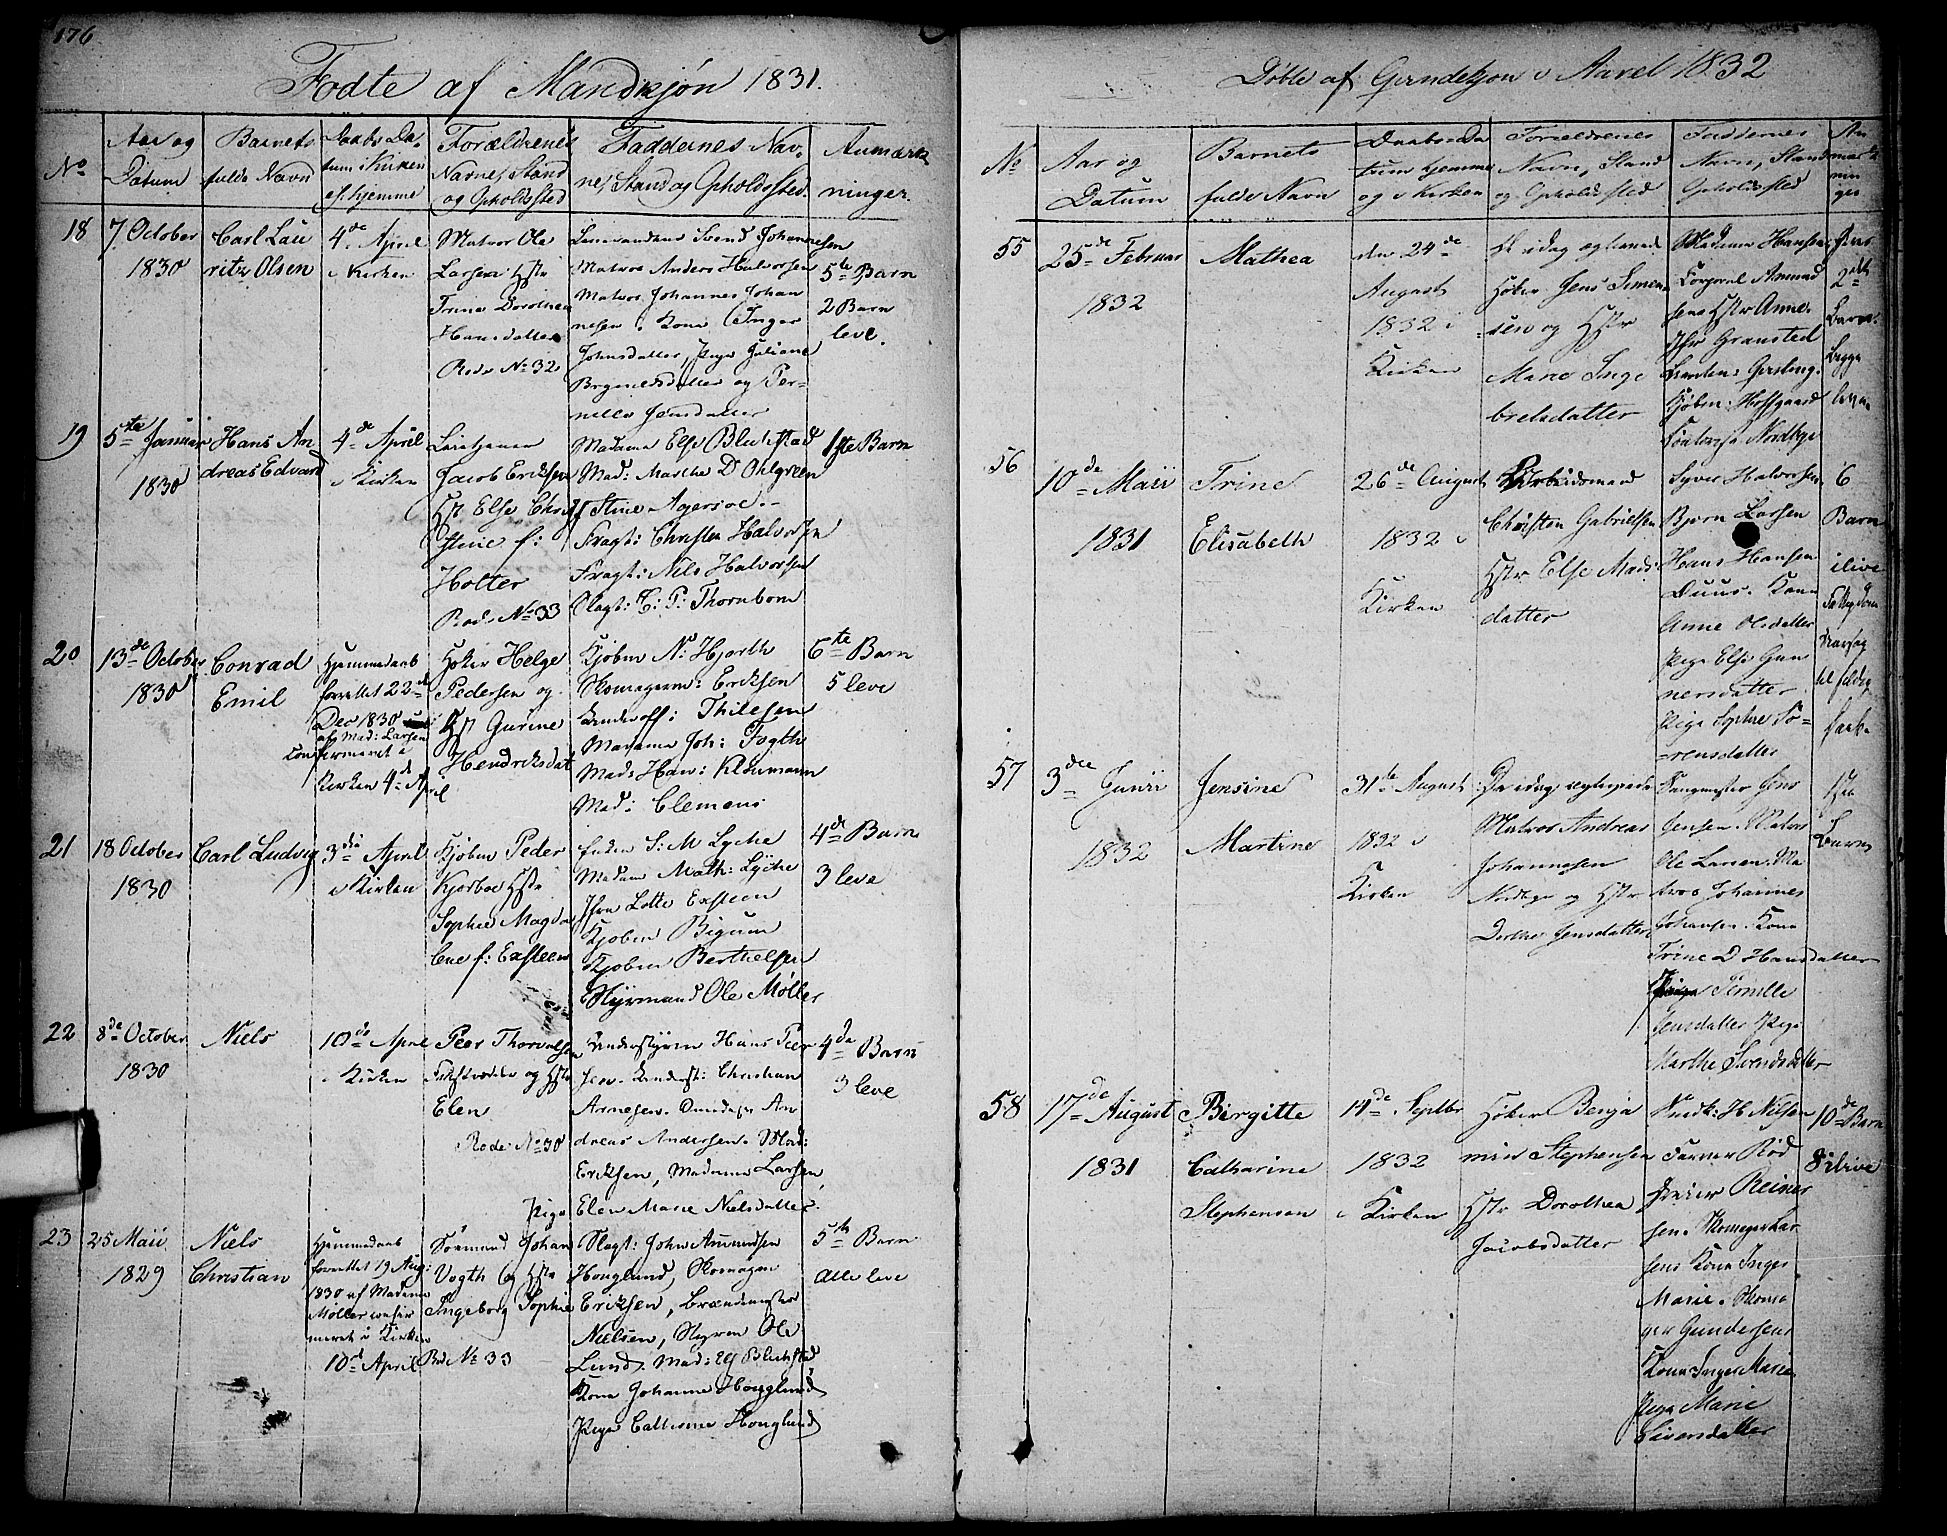 176
Fodte af Mandkjøn 1831.
No
Aar og
Datum
Barnets
fulde Navn
Daabs Da-
tum i Kirken
el. hjemme
Forældrenes
Navne, Stand
og Opholdssted
Faddernes Nav-
ne, Stand og Opholdssted.
Anmærk
ninger.
18
7 October
1830
Carl Lau
ritz Olsen
4de April
i Kirken
Matros Ole
Larsen Hstr
Trine Dorothea
Hansdatter
Rode No 32
Svend Johannesen
Matros Anders Halvorsen
Matros Johannes Johan
nesen. Kone Inger
Johnsdatter, Pige Juliane
Brynildsdatter og Per-
nille Jensdatter
5te Barn
2 Barn
leve.
19
5te Januar
1830
Hans An
dreas Edvard
4de April
i Kirken
Jacob Eriksen
Hst Else Chri
stine f:
Holter
Rode No 33
Madame Else Blichfeldt
Mad: Marthe D Ohlgreen
Jf Stine Agersøe.
Fragt: Christen Halvorsen
Fragt: Nils Halvorsen
Slagt: C: P: Thornbom
1ste Barn
20
13de October
1830
Conrad
Emil
Hjemmedaab
forrettet 22de
Dec 1830
af Mad: Larsen
Confirmeret i
Kirken 4de April
Høker Helge
Pedersen og
Hst Gurine
Hendriksdat
Kjøbm N: Hjorth
Skomagerm: Eriksen
Underoff: Thilesen
Madame Joh: Fogth
Mad: Han: Kloumann
Mad: Clemens
6te Barn
5 leve
21
18 October
1830
Carl Ludvig
3die April
i Kirken
Kjøbm Peder
Kjørboe Hstr
Sophie Magda
lene f: Exsteen
S: M Lyche
Madam Math: Lyche
Jfru Lotte Exsteen
Kjøbm Bigum
Kjøbm Berthelsen
Styrmand Ole Møller
4de Barn
3 leve
22
8de October
1830
Niels
10de April
i Kirken
Peer Thorvalsen
og Hstr
Elen
Rode No 30
Understyrm Hans Peer
sen. Underst: Christian
Arnesen. An
dreas Andersen. Mad:
Eriksen, Madame Larsen,
Pige Elen Marie Nielsdatter.
4de Barn
3 leve
23
25 Maii
1829
Niels
Christian
Hjemmedaab
forrettet 19 Aug:
1830 af Madame
Møller confir
meret i Kirken
10de April
Sømand Johan
Vogth og Hstr
Ingeborg Sophie
Rod No 33
Slagt: John Amundsen
Houglund, Skomager
Eriksen, Brændemester
Nielsen, Styrm Ole
Lund. Mad: Elf Blichfeldt
Kone Johanne Houglund
Pige Cathrine Houglund
5te Barn
Alle leve
Døbte af Qvindekjøn i Aaret 1832
No
Aar og
Datum
Barnets
fulde Navn
Daabs Da
tum hjemme
og i Kirken
Forældrenes
Navn, Stand
og Opholdssted
Faddernes
Navn, Stand
Opholdssted
An
mærk
nin
ger
55
25de Februar
1832
Mathea
den 24de
August
1832 i
Kirken
Høker Jens Simen-
sen og Hstr
Marie Inge
bretsdatter
Madame Hansen
Corporal Amund
sens Hstr Anne.
Jfr Gransted
Kjøbm: Hoffgaard
2det
Barn.
Begge
leve
56
10de Maii
1831
Trine
Elisabeth
26de August
1832 i
Kirken
Arbeidsmand
Christen Gabrielsen
Hstr Else Mads
datter
Syver Halvorsen
Bjørn Larsen
Hans Hansen
Duus. Kone
Anne Olsdatter
Pige Else Gun
nersdatter
Pige Sophie Sø-
rensdatter
6
Barn
ilive
57
3die Junii
1832
Jensine
Martine
31te August
1832 i
Kirken
Matros Andreas
Johannesen
og Hstr
Dorthe Jensdatter
Tangmester Jens
Jensen. Matros
Ole Larsen. Ma
tros Johannes
Johansen. Kone
Trine D Hansdatter
Pernille
Jensdatter Pige
Marthe Svendsdatter
1ste
Barn
58
17de August
1831
Birgitte
Catharine
Stephensen
14de Septbr
1832
i Kirken
Høker Benja
min Stephensen
Hstr Dorothea
Jacobsdatter
Snedk: H. Nilsen
Farver Rød
Reiner
sen. Skomager Lar
sens Kone Inger
Marie. Skoma
ger Gundersens
Kone Inger Marie
Pige Marie
Siversdatter
10de Barn
8 ilive